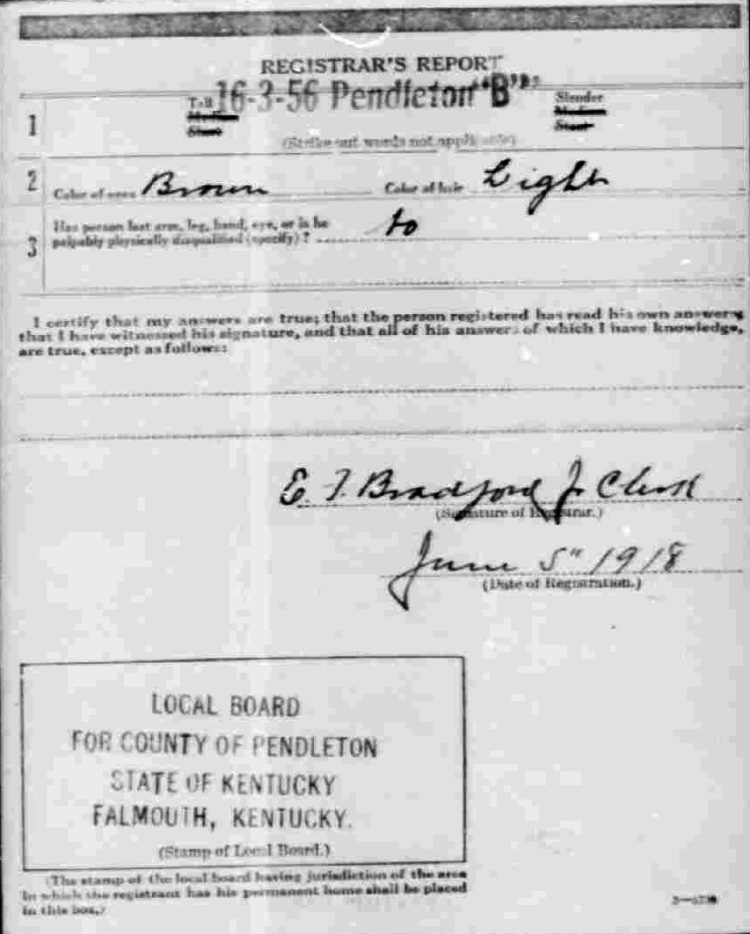 REGISTRAR'S REPORT
16-3-56 Pendleton "B"
1 Tall Medium Short Slender Medium Stout
(Strike out words not applicable)
2 Color of eyes Brown Color of hair Light
3 Has person lost arm, leg, hand, eye, or is he
palpably physically disqualified (specify)?
I certify that my answers are true; that the person registered has read his own answers,
that I have witnessed his signature, and that all of his answers of which I have knowledge,
are true, except as follows:
E. T. Bradford Jr Clerk
(Signature of Registrar.)
June 5" 1918
(Date of Registration.)
LOCAL BOARD
FOR COUNTY OF PENDLETON
STATE OF KENTUCKY
FALMOUTH, KENTUCKY.
(Stamp of Local Board.)
(The stamp of the local board having jurisdiction of the area
in which the registrant has his permanent home shall be placed
in this box.)